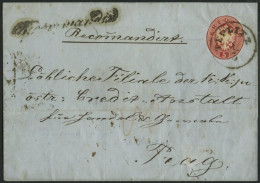 Recommandirt.
TEPLITZ
Löbliche Filiale der k. k. pr
östr. Credit-Anstalt
für Handel & Gewerbe
Prag.